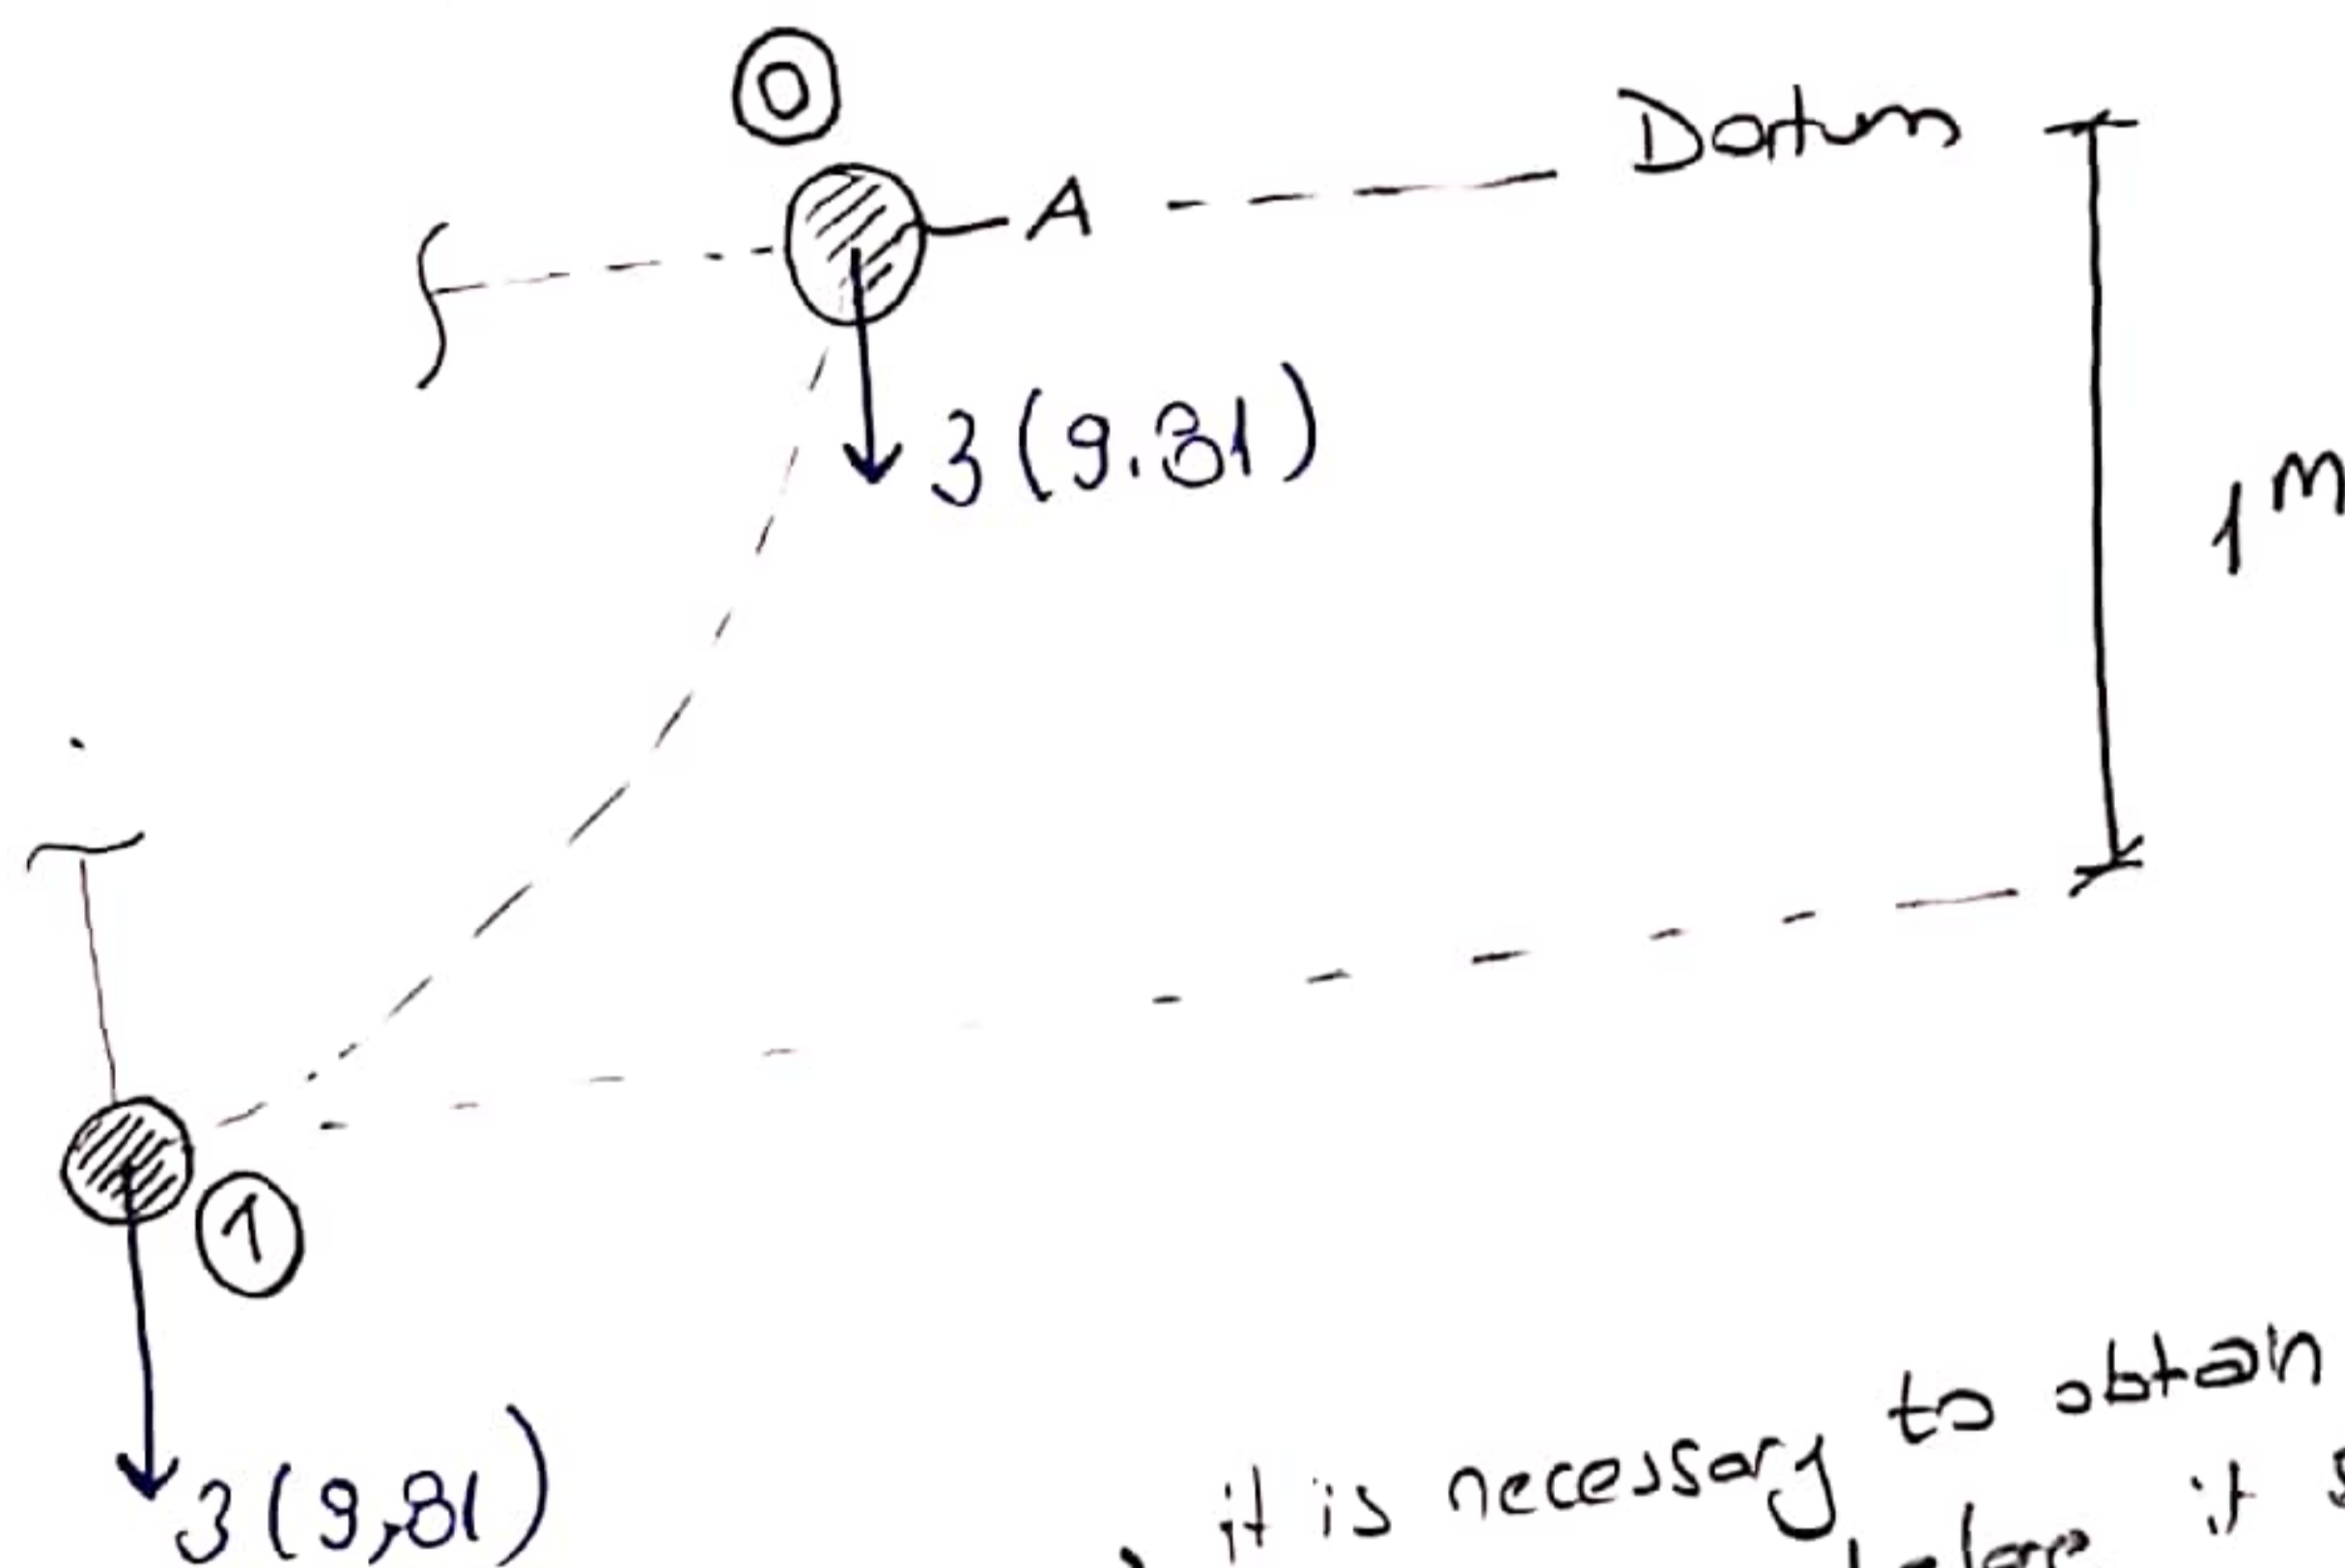 0
Datum
A
3(9.81)
1m
1
3(9,81)
it is necessary to obtain
it